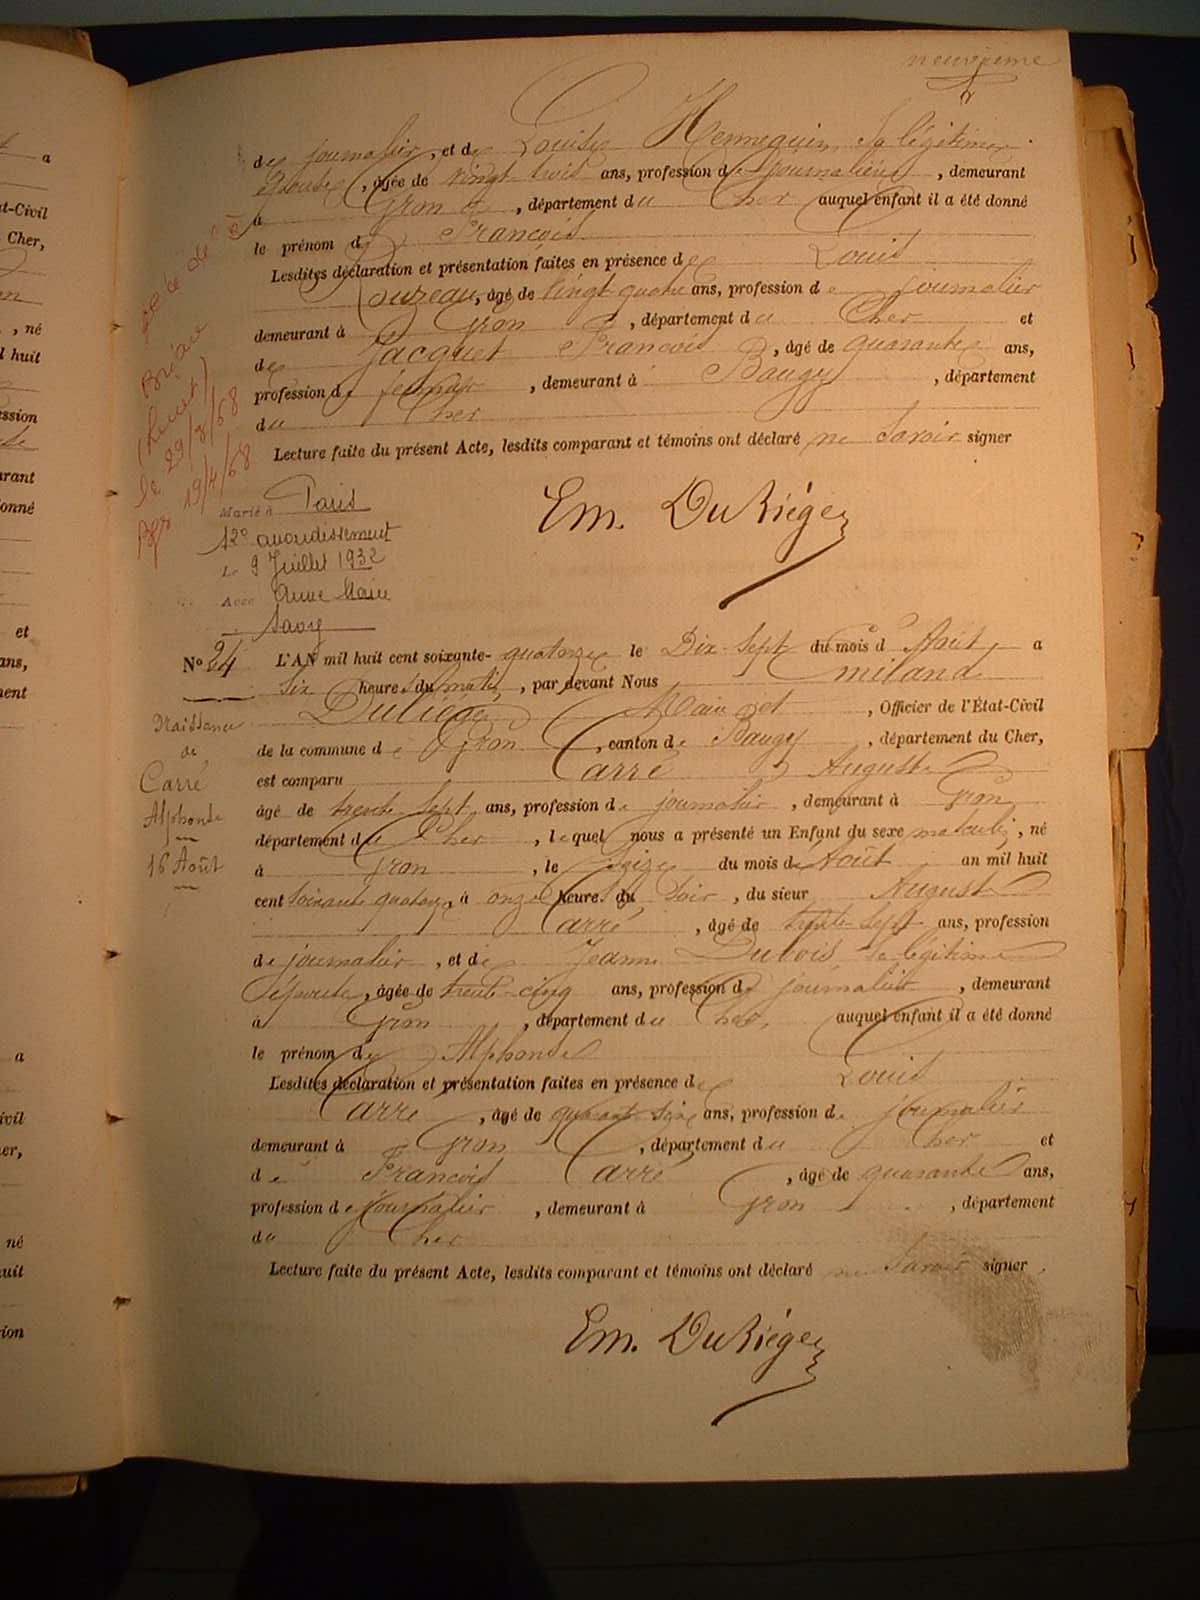 neuvième
de journalier, et de Louise Hennequin sa légitime
Epouse, âgée de vingt trois ans, profession de journalière, demeurant
à Gron, département du Cher auquel enfant il a été donné
le prénom de François
Lesdites déclaration et présentation faites en présence de Louis
Couzeau, âgé de vingt quatre ans, profession de journalier
demeurant à Gron, département du Cher et
de Jacquet François, âgé de quarante ans,
profession de fermier, demeurant à Baugy, département
du Cher
Lecture faite du présent Acte, lesdits comparant et témoins ont déclaré ne Savoir signer
Em. Duliége
décédé à
Bréau
le 29/3/68
19/4/68
Marié à Paris
12e arrondissement
Le 9 Juillet 1932
Avec Anne Marie
Savy
No 24 L'AN mil huit cent soixante-quatorze le Dix-Sept du mois d'Août a
Six heures du matin, par devant Nous Emiland
Duliége Maire et, Officier de l'État-Civil
de la commune de Gron, canton de Baugy, département du Cher,
est comparu Carré Auguste
âgé de trente sept ans, profession de journalier, demeurant à Gron
département du Cher, lequel nous a présenté un Enfant du sexe masculin, né
à Gron, le Seize du mois de Août an mil huit
cent soixante quatorze à onze heures du Soir, du sieur Auguste
Carré, âgé de trente sept ans, profession
de journalier, et de Jeanne Dubois sa légitime
épouse, âgée de trente-cinq ans, profession de journalière, demeurant
à Gron, département du Cher, auquel enfant il a été donné
le prénom de Alphonse
Lesdites déclaration et présentation faites en présence de Louis
Carré, âgé de quarante six ans, profession de journalier
demeurant à Gron, département du Cher et
de François Carré, âgé de quarante ans,
profession de journalier, demeurant à Gron, département
du Cher
Lecture faite du présent Acte, lesdits comparant et témoins ont déclaré ne Savoir signer
Em. Duliége
Naissance
de
Carré
Alphonse
16 Août